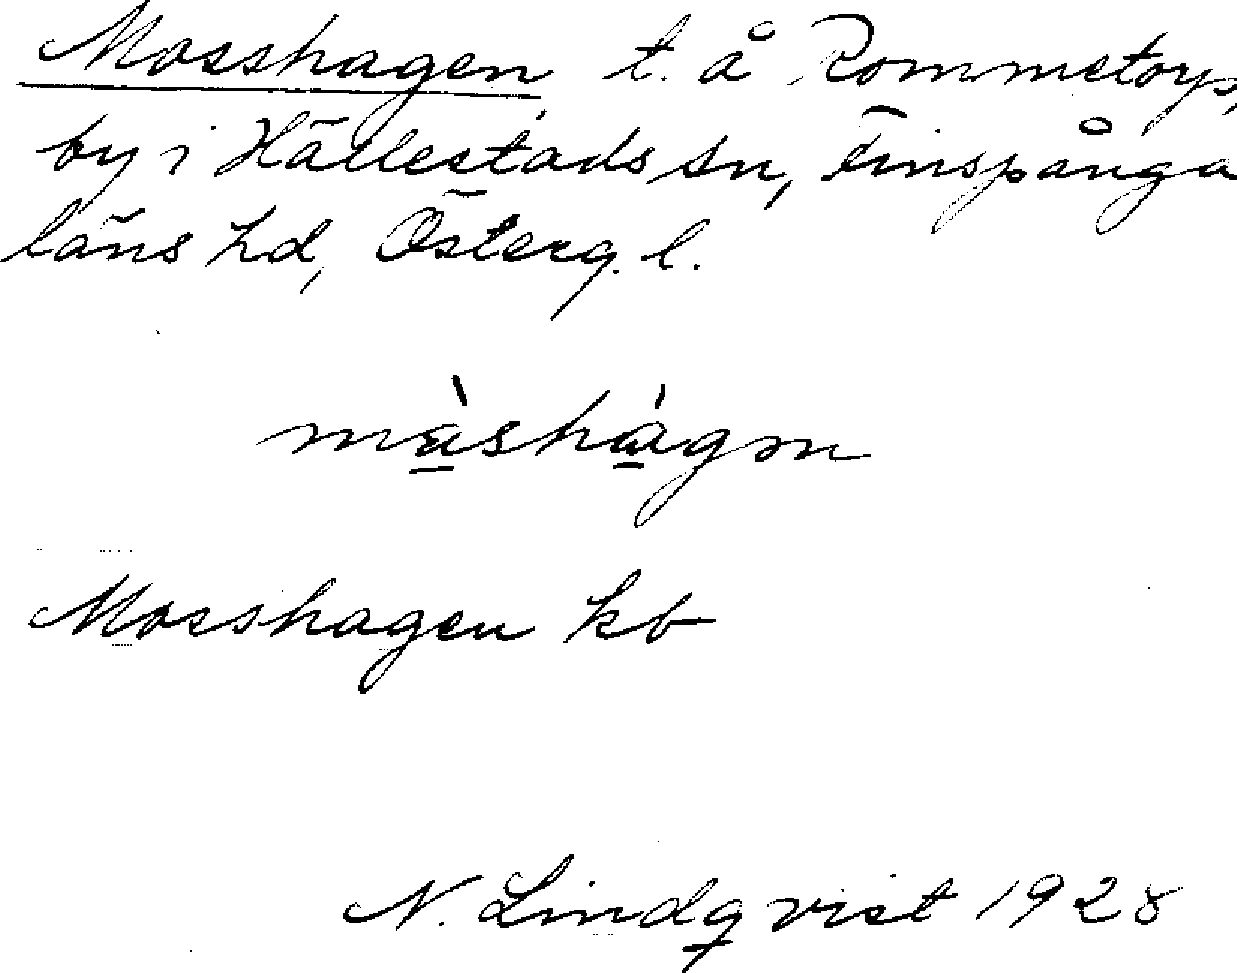 Mosshagen, t. å Rommetorps
by i Hällestads sn, Finspånga
läns hd, Österg. l.
mȧshágən
Mosshagen kb
N. Lindqvist 1928